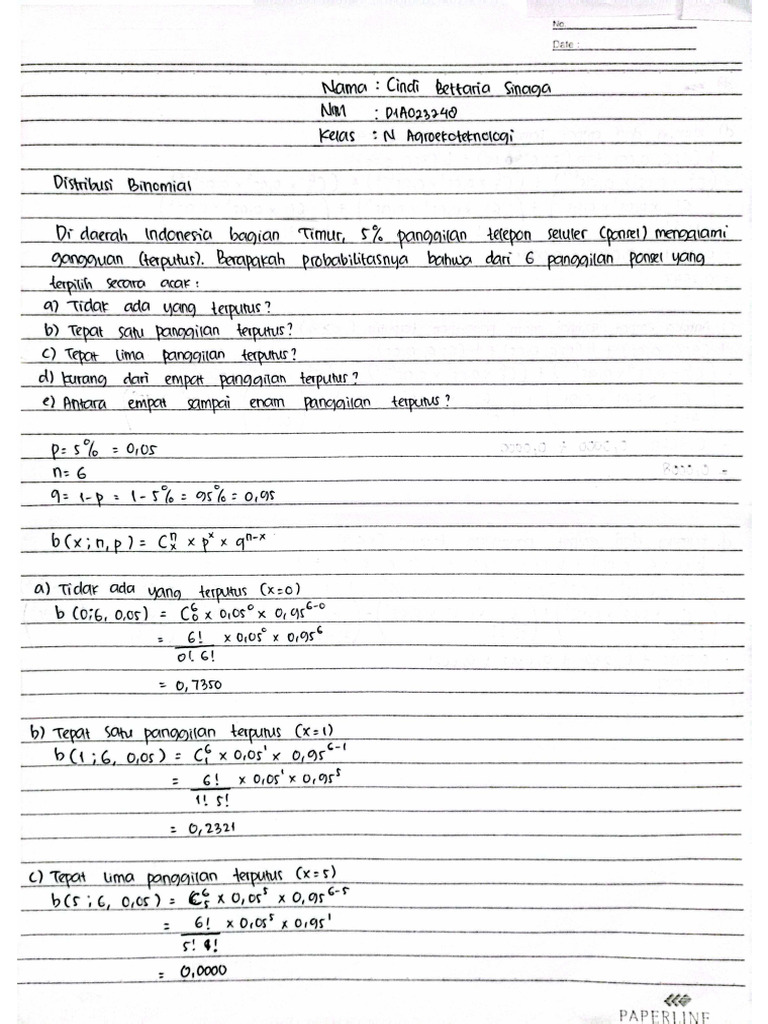 No.
Date :
Nama : Cindi Bettaria Sinaga
NPM : D1A023240
Kelas : N Agroekoteknologi
Distribusi Binomial
Di daerah Indonesia bagian Timur, 5% panggilan telepon seluler (ponsel) mengalami
gangguan (terputus). Berapakah probabilitasnya bahwa dari 6 panggilan ponsel yang
terpilih secara acak :
a) Tidak ada yang terputus ?
b) Tepat satu panggilan terputus ?
c) Tepat lima panggilan terputus ?
d) Kurang dari empat panggilan terputus ?
e) Antara empat sampai enam panggilan terputus ?
p = 5% = 0,05
n = 6
q = 1-p = 1 - 5% = 95% = 0,95
b(x ; n, p) = Cₓⁿ × pˣ × qⁿ⁻ˣ
a) Tidak ada yang terputus (x=0)
b (0;6, 0,05) = C₀⁶ × 0,05⁰ × 0,95⁶⁻⁰
= 6! × 0,05⁰ × 0,95⁶
0! . 6!
= 0,7350
b) Tepat satu panggilan terputus (x=1)
b (1 ; 6, 0,05) = C₁⁶ × 0,05¹ × 0,95⁶⁻¹
= 6! × 0,05¹ × 0,95⁵
1! 5!
= 0,2321
c) Tepat lima panggilan terputus (x=5)
b(5 ; 6, 0,05) = C₅⁶ × 0,05⁵ × 0,95⁶⁻⁵
= 6! × 0,05⁵ × 0,95¹
5! 1!
= 0,0000
PAPERLINE